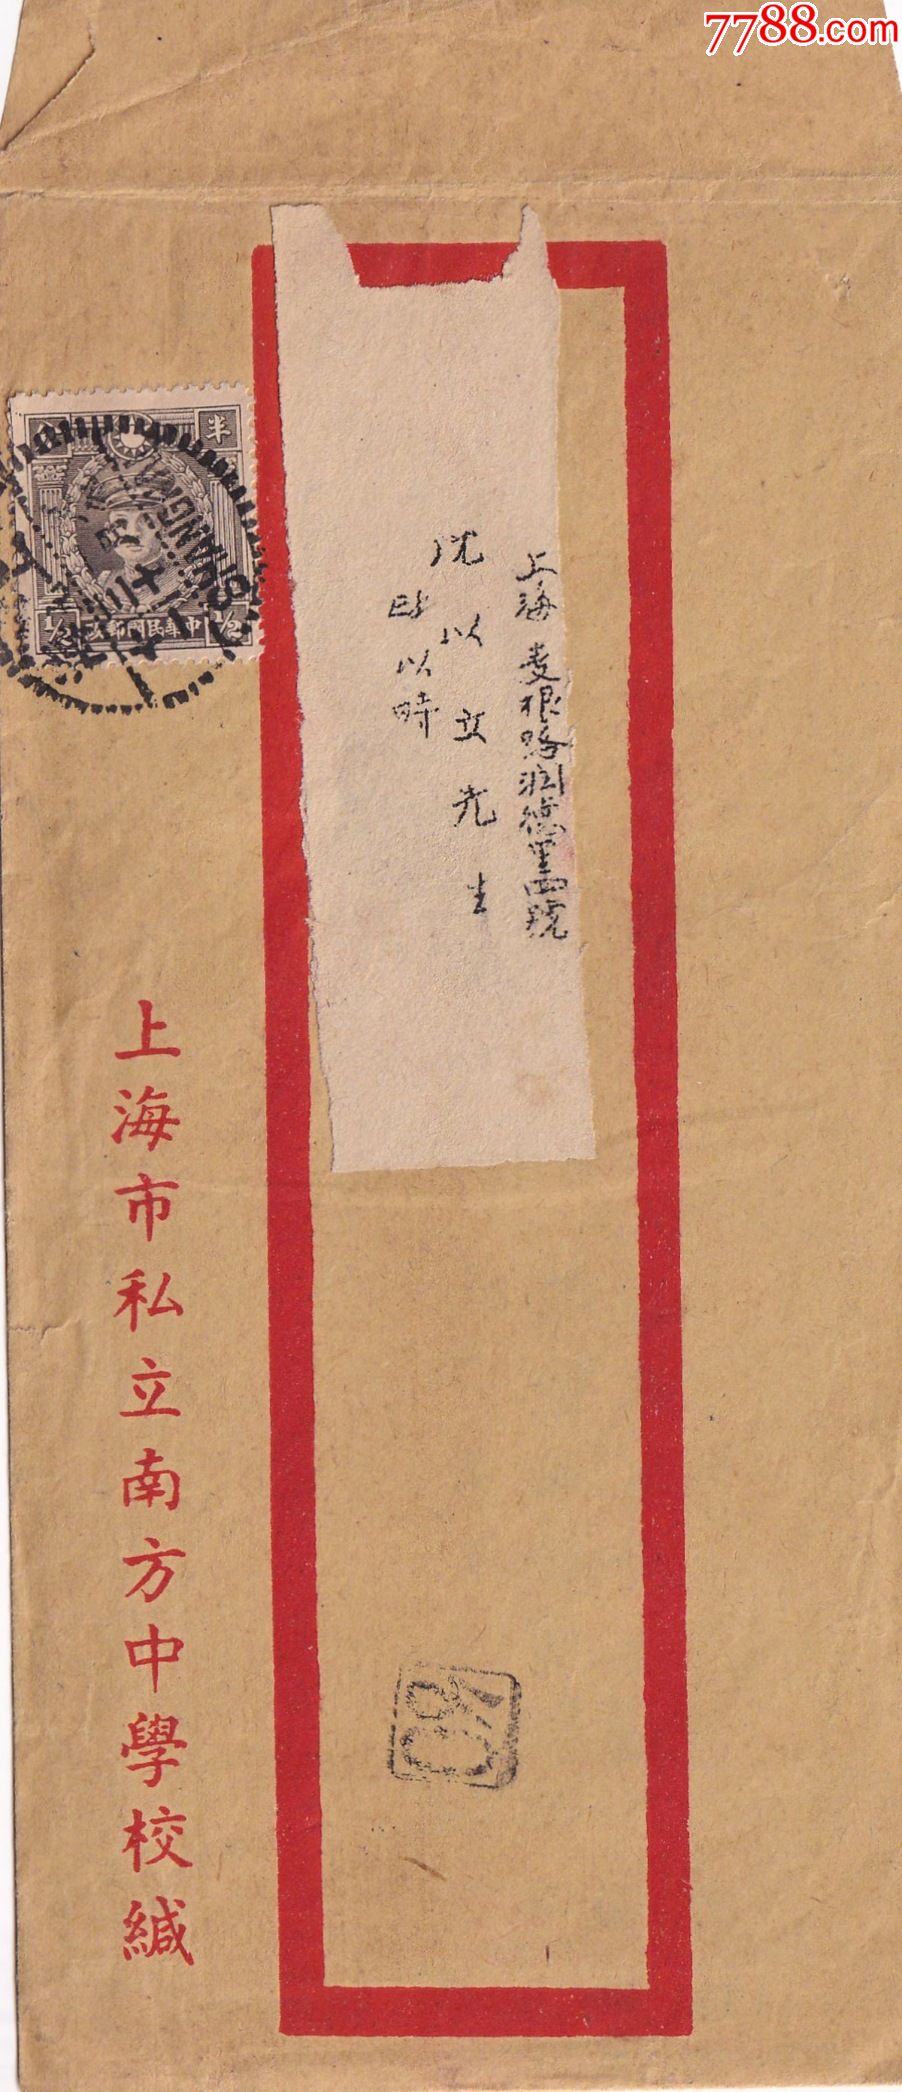 7788.com
半
1/2
中華民國郵政
SHANGHAI
上海麥根路潤德里四號
沈以立先生
以時
上海市私立南方中學校緘